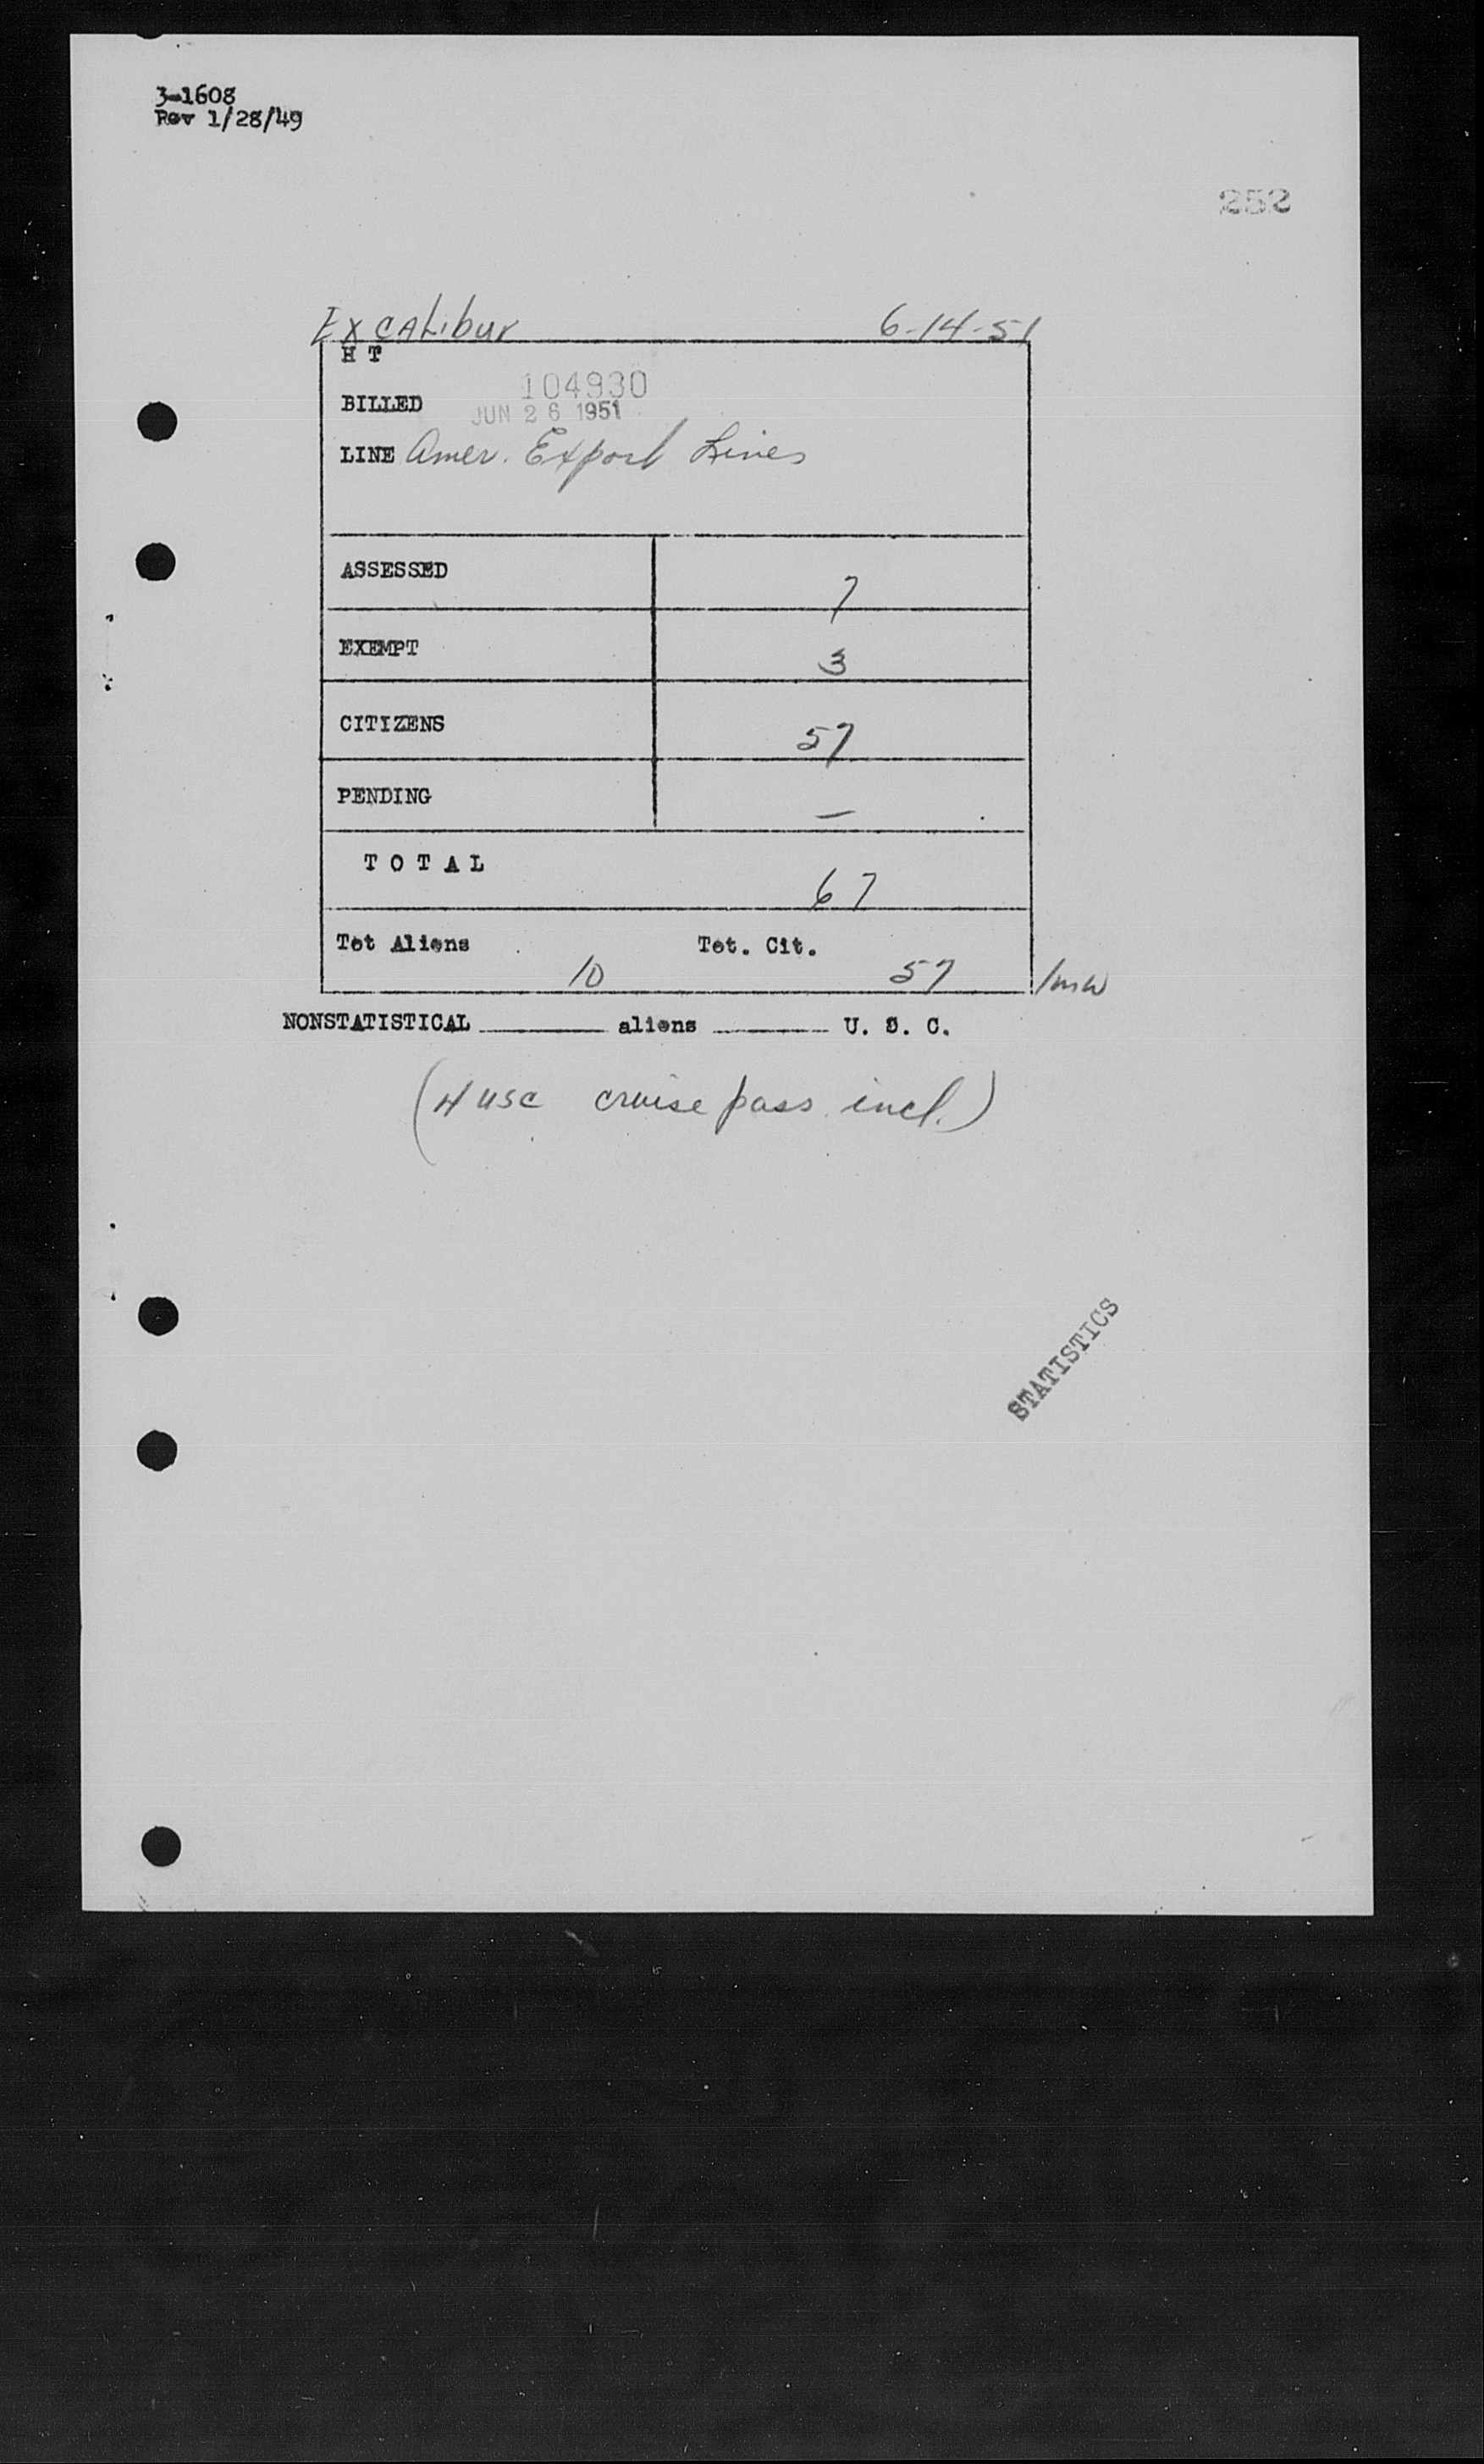 3-1608
Rev 1/28/49
252
Excalibur 6-14-51
H T
104930
BILLED JUN 26 1951
LINE Amer. Export Lines
ASSESSED 7
EXEMPT 3
CITIZENS 57
PENDING —
TOTAL 67
Tot Aliens 10 Tot. Cit. 57 /mw
NONSTATISTICAL ______ aliens ______ U. S. C.
( USC cruise pass. incl.)
STATISTICS